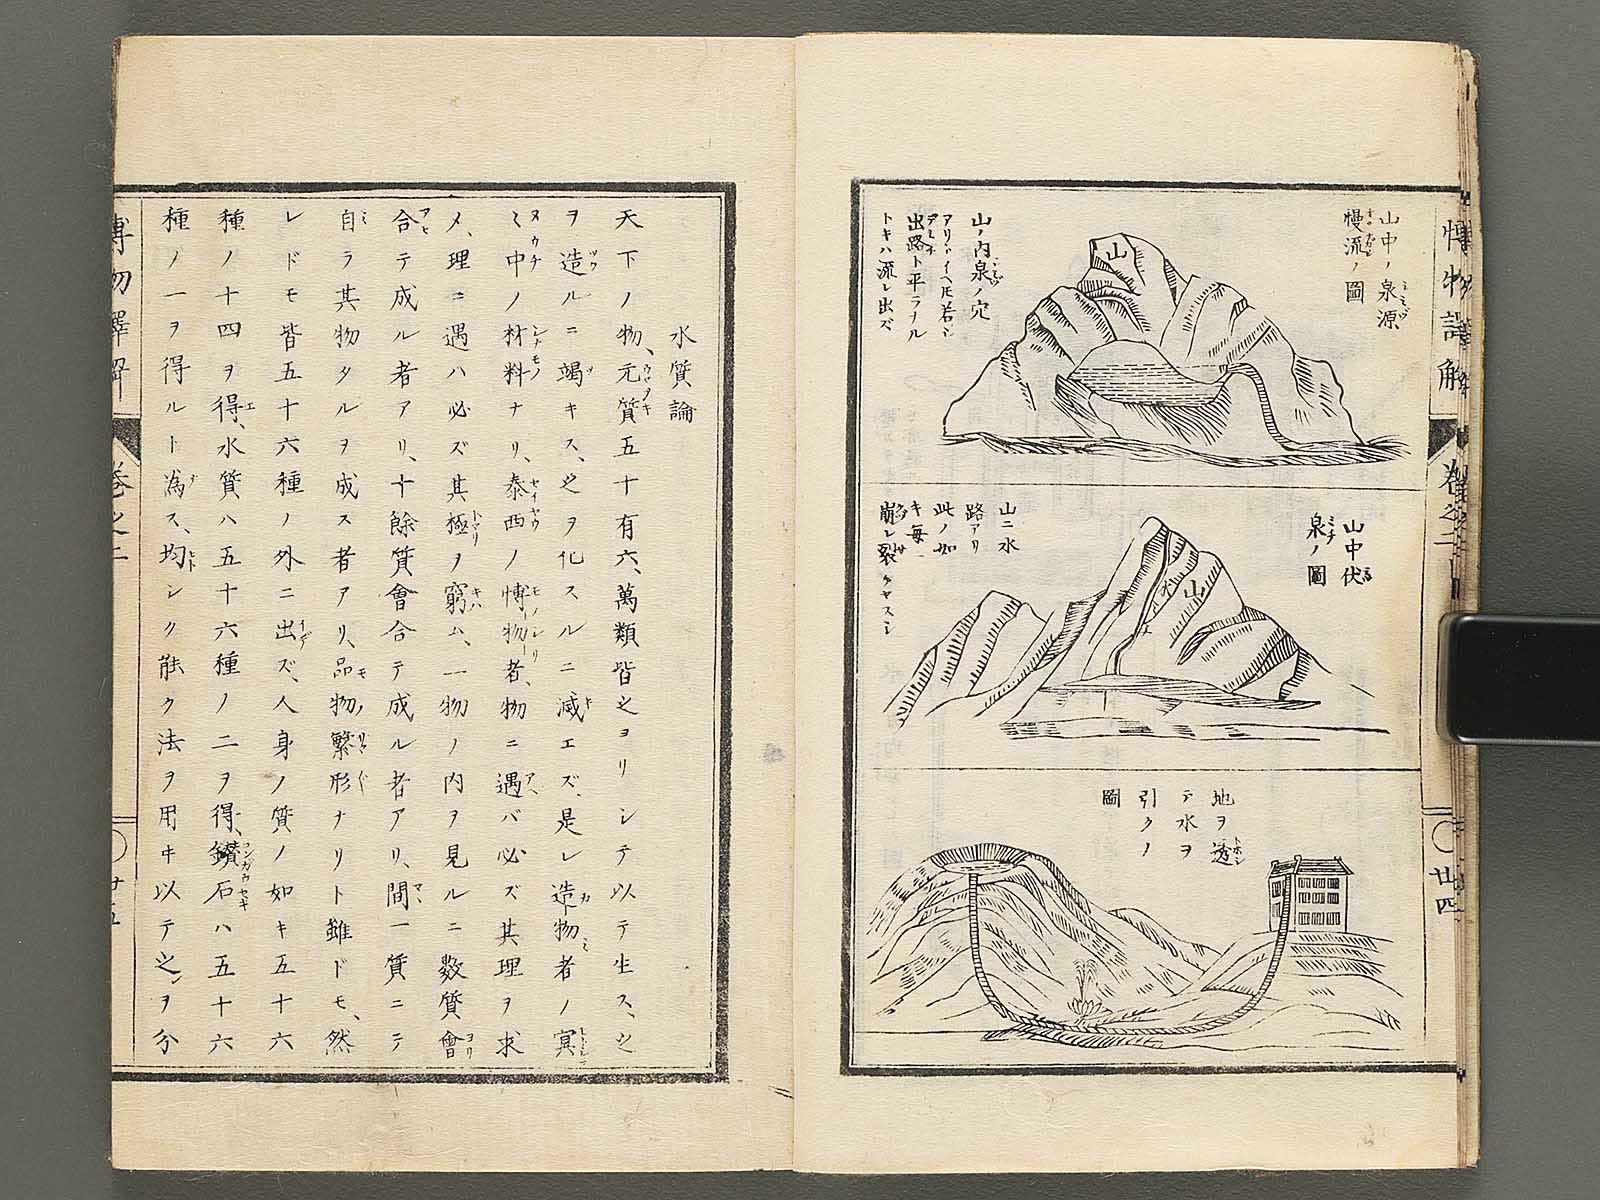 博物譯解
卷之二
廿四
山中ノ泉源
慢流ノ圖
山
山ノ内泉ノ穴
アリトイヘ𪜈若シ
出路ト平ラナル
トキハ流レ出ズ
山中伏
泉ノ圖
山ニ水
路アリ
此ノ如
キ毎
崩レ裂ケヤスシ
水
山
地ヲ透
テ水ヲ
引クノ
圖
水質論
天下ノ物、元質五十有六、萬類皆之ヨリシテ以テ生ス、之
ヲ造ルニ竭キス、之ヲ化スルニ滅エズ、是レ造物者ノ冥
ミ中ノ材料ナリ、泰西ノ博物者、物ニ遇バ必ズ其理ヲ求
メ、理ニ遇ハ必ズ其極ヲ窮ム、一物ノ内ヲ見ルニ數質會
合テ成ル者アリ、十餘質會合テ成ル者アリ、間一質ニテ
自ラ其物タルヲ成ス者アリ、品物繁形ナリト雖ドモ、然
レドモ皆五十六種ノ外ニ出ズ、人身ノ質ノ如キ五十六
種ノ十四ヲ得、水質ハ五十六種ノ二ヲ得、鑚石ハ五十六
種ノ一ヲ得ルト為ス、均シク能ク法ヲ用ヰ以テ之ヲ分
博物譯解
卷之二
廿五